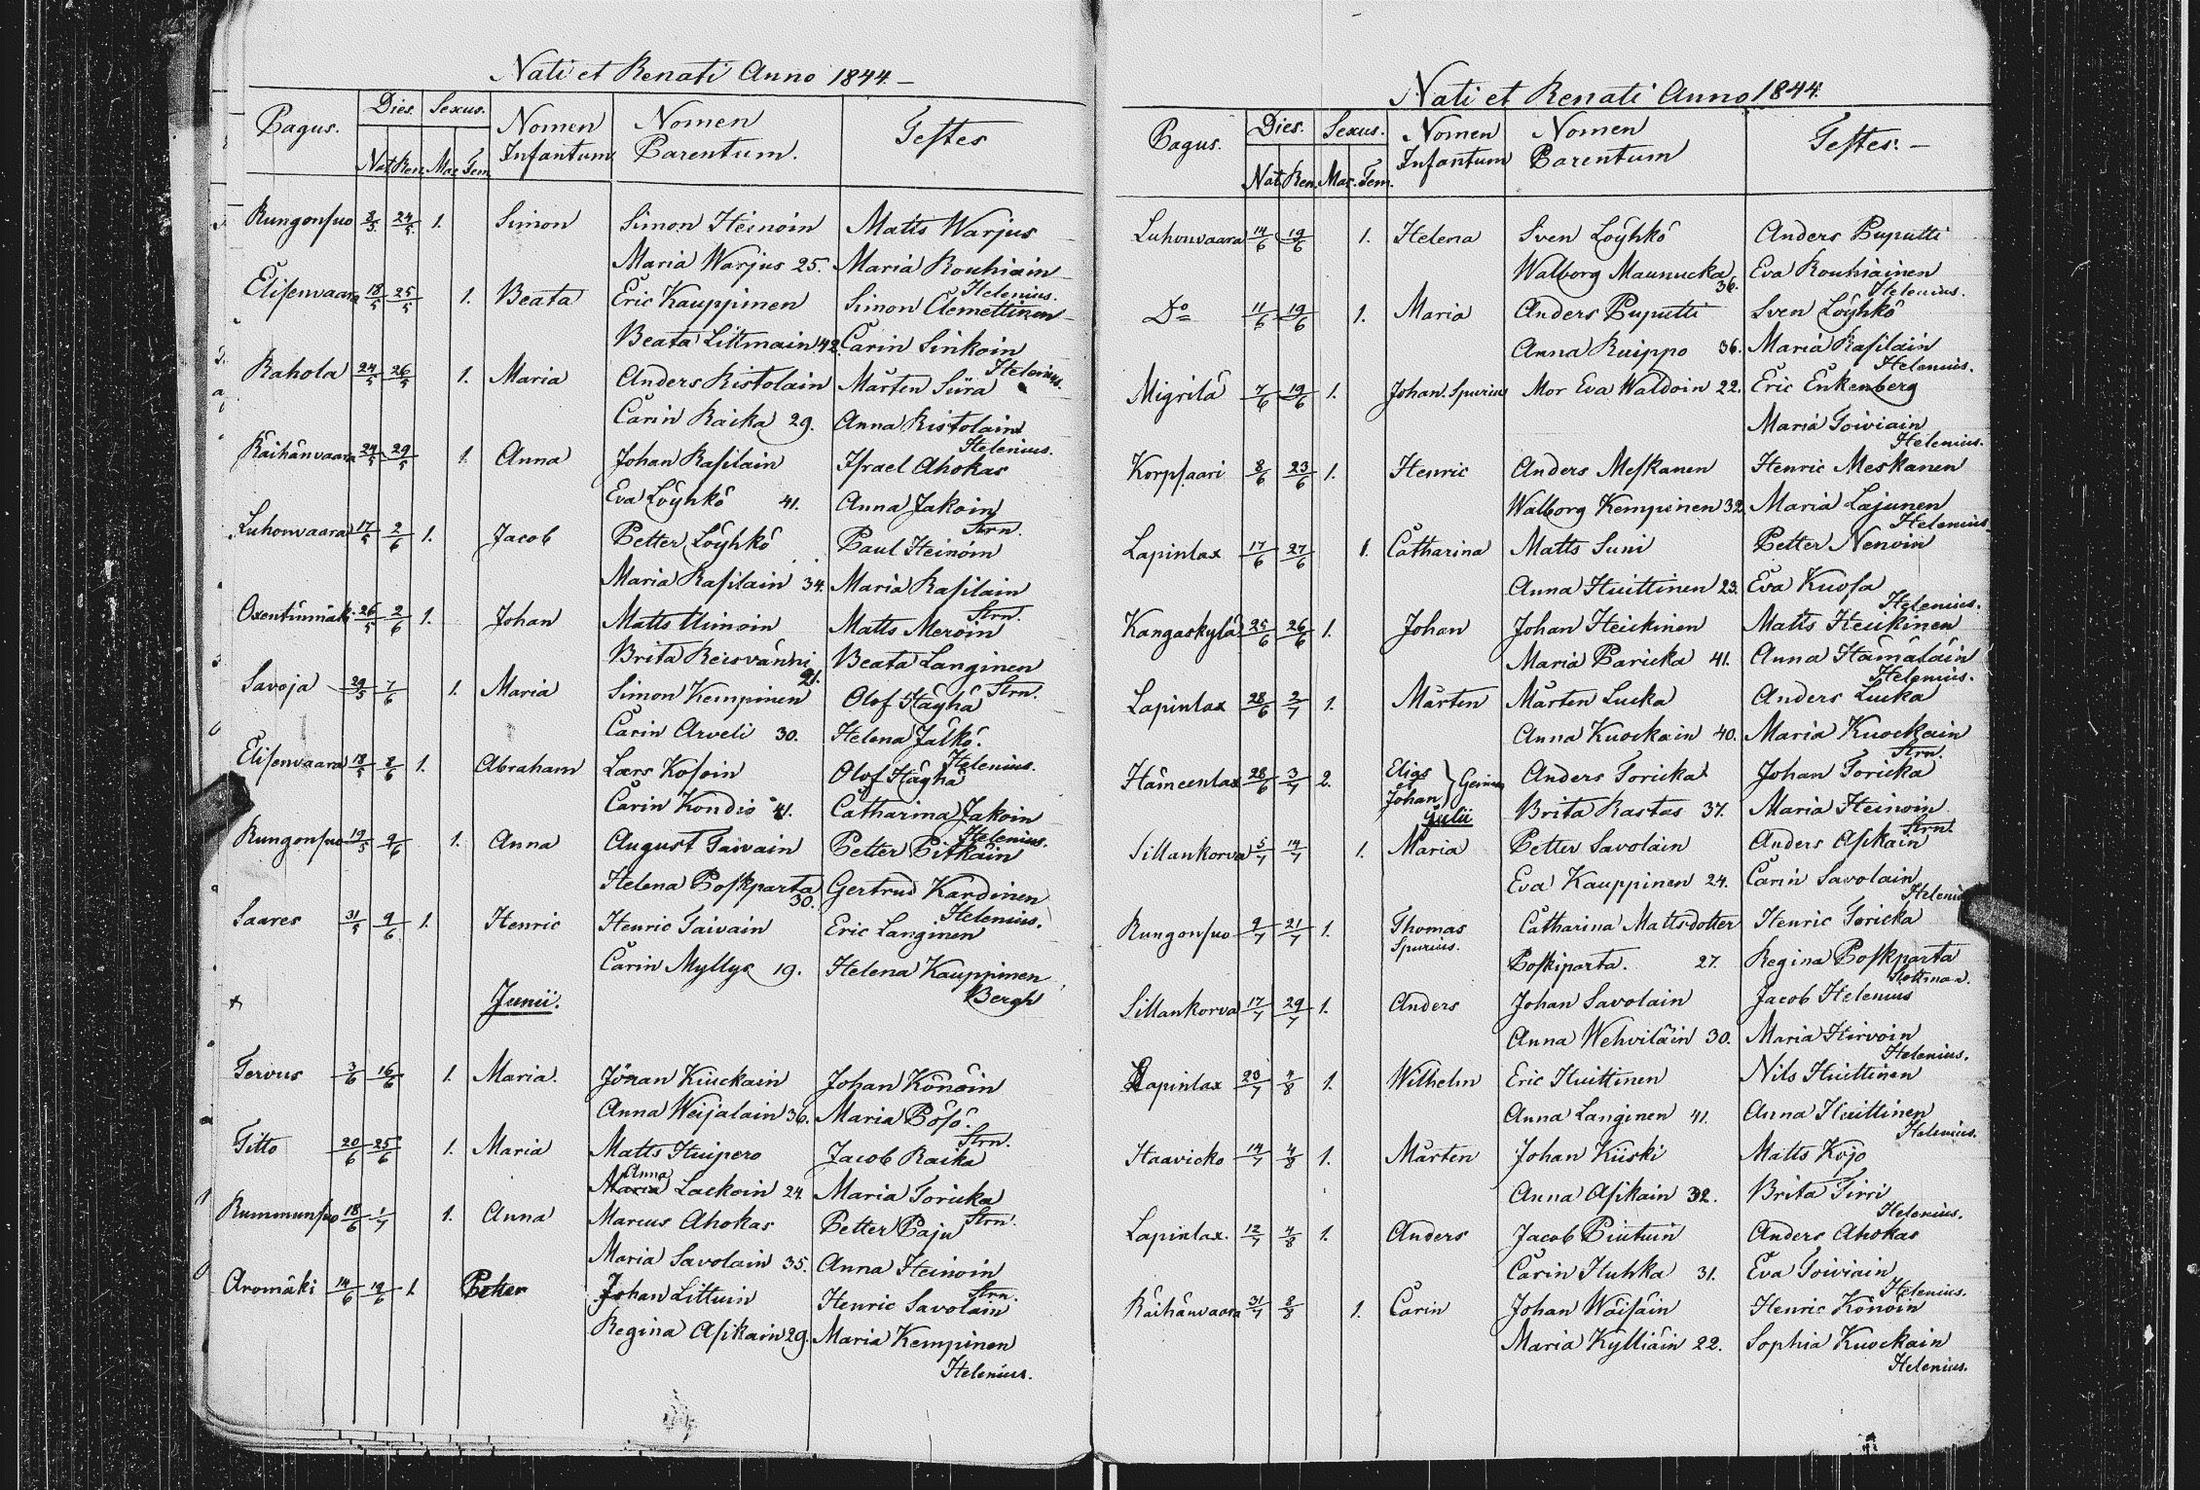 Nati et Renati Anno 1844.–
Pagus. Dies. Sexus. Nomen Infantum Nomen Parentum. Testes
Nat. Ren. Mas. Fem.
Rungonsuo 3/5 24/5 1. Simon Simon Heinoin Matts Warjus
Maria Warjus 25. Maria Rouhiain
Helenius.
Elisenvaara 18/5 25/5 1. Beata Eric Kauppinen Simon Clemettinen
Beata Littmain 42. Carin Sinkoin
Helenius.
Rahola 24/5 26/5 1. Maria Anders Ristolain Mårten Siira
Carin Raika 29. Anna Ristolain
Helenius.
Räihänvaara 24/5 29/5 1. Anna Johan Rasilain Israel Ahokas
Eva Löyhkö 41. Anna Jakoin
Strn.
Luhonvaara 17/5 2/6 1. Jacob Petter Löyhkö Paul Heinoin
Maria Rasilain 34. Maria Rasilain
Strn.
26/5 2/6 1. Johan Matts Uimoin Matts Meroin
Brita Beata Langinen
21. Strn.
Savoja 29/5 7/6 1. Maria Simon Kempinen Olof Häyhä
Carin Arveli 30. Helena Jälkö.
Helenius.
Elisenvaara 18/5 8/6 1. Abraham Lars Kosoin Olof Häyhä
Carin Kondio 41. Catharina Jakoin
Helenius.
Rungonsuo 19/5 9/6 1. Anna August Taivain Petter Pitkäin
Helena Poskparta 30. Gertrud Kärdinen
Helenius.
Saares 31/5 9/6 1. Henric Henric Taivain Eric Langinen
Carin Myllys 19. Helena Kauppinen
Bergh
Junii.
Tervus 3/6 16/6 1. Maria. Jöran Kiuckain Johan Könöin
Anna Weijalain 36. Maria Pösö.
Strn.
Titto 20/6 25/6 1. Maria Matts Huipero Jacob Raika
Anna
Maria Lackoin 24. Maria Toricka
Strn.
Rummunsuo 18/6 1/7 1. Anna Marcus Ahokas Petter Paju
Maria Savolain 35. Anna Heinoin
Strn.
Aromäki 14/6 19/6 1. Petter Johan Littuin Henric Savolain
Regina Asikain 29. Maria Kempinen
Helenius.
Nati et Renati Anno 1844.
Pagus. Dies. Sexus. Nomen Infantum Nomen Parentum Testes.–
Nat. Ren. Mas. Fem.
Luhonvaara 14/6 19/6 1. Helena Sven Löyhkö Anders Puputti
Walborg Maunucka 36. Eva Rouhiainen
Helenius.
Do 11/6 19/6 1. Maria Anders Puputti Sven Löyhkö
Anna Ruippo 36. Maria Rasilain
Helenius.
Migrilä 7/6 19/6 1. Johan. Spurius Mor Eva Waldoin 22. Eric Enkenberg
Maria Toiviain
Helenius.
Korpsaari 8/6 23/6 1. Henric Anders Meskanen Henric Meskanen
Walborg Kempinen 32. Maria Lajunen
Helenius
Lapinlax 17/6 27/6 1. Catharina Matts Suni Petter Nenoin
Anna Huittinen 23. Eva Kuosa
Helenius.
Kangaskylä 25/6 26/6 1. Johan Johan Heickinen Matts Heickinen
Maria Paricka 41. Anna Hämäläin
Helenius.
Lapinlax 28/6 2/7 1. Mårten Mårten Lucka Anders Lucka
Anna Kuockain 40. Maria Kuockain
Strn.
Hämeenlax 28/6 3/7 2. Elias Johan } Gemini Anders Toricka Johan Toricka
Brita Rastas 37. Maria Heinoin
Julii Strn.
Sillankorva 5/7 14/7 1. Maria Petter Savolain Anders Asikain
Eva Kauppinen 24. Carin Savolain
Helenius
Rungonsuo 9/7 21/7 1. Thomas Catharina Mattsdotter Henric Toricka
Spurius. Poskiparta. 27. Regina Poskparta
Sillankorva 17/7 29/7 1. Anders Johan Savolain Jacob Helenius
Anna Wehviläin 30. Maria Hirvoin
Helenius.
Lapinlax 23/7 4/8 1. Wilhelm Eric Huittinen Nils Huittinen
Anna Langinen 41. Anna Huittinen
Helenius.
Haavicko 14/7 4/8 1. Mårten Johan Kiiski Matts Kojo
Anna Asikain 32. Brita Tirri
Helenius.
Lapinlax. 12/7 4/8 1. Anders Jacob Piutuin Anders Ahokas
Carin Huhka 31. Eva Toiviain
Helenius.
Räihänvaara 31/7 8/8 1. Carin Johan Wäisäin Henric Könöin
Maria Kylliäin 22. Sophia Kuockain
Helenius.